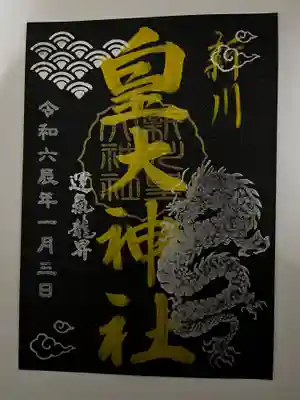 新川
皇大神社
運氣龍昇
令和六辰年一月三日